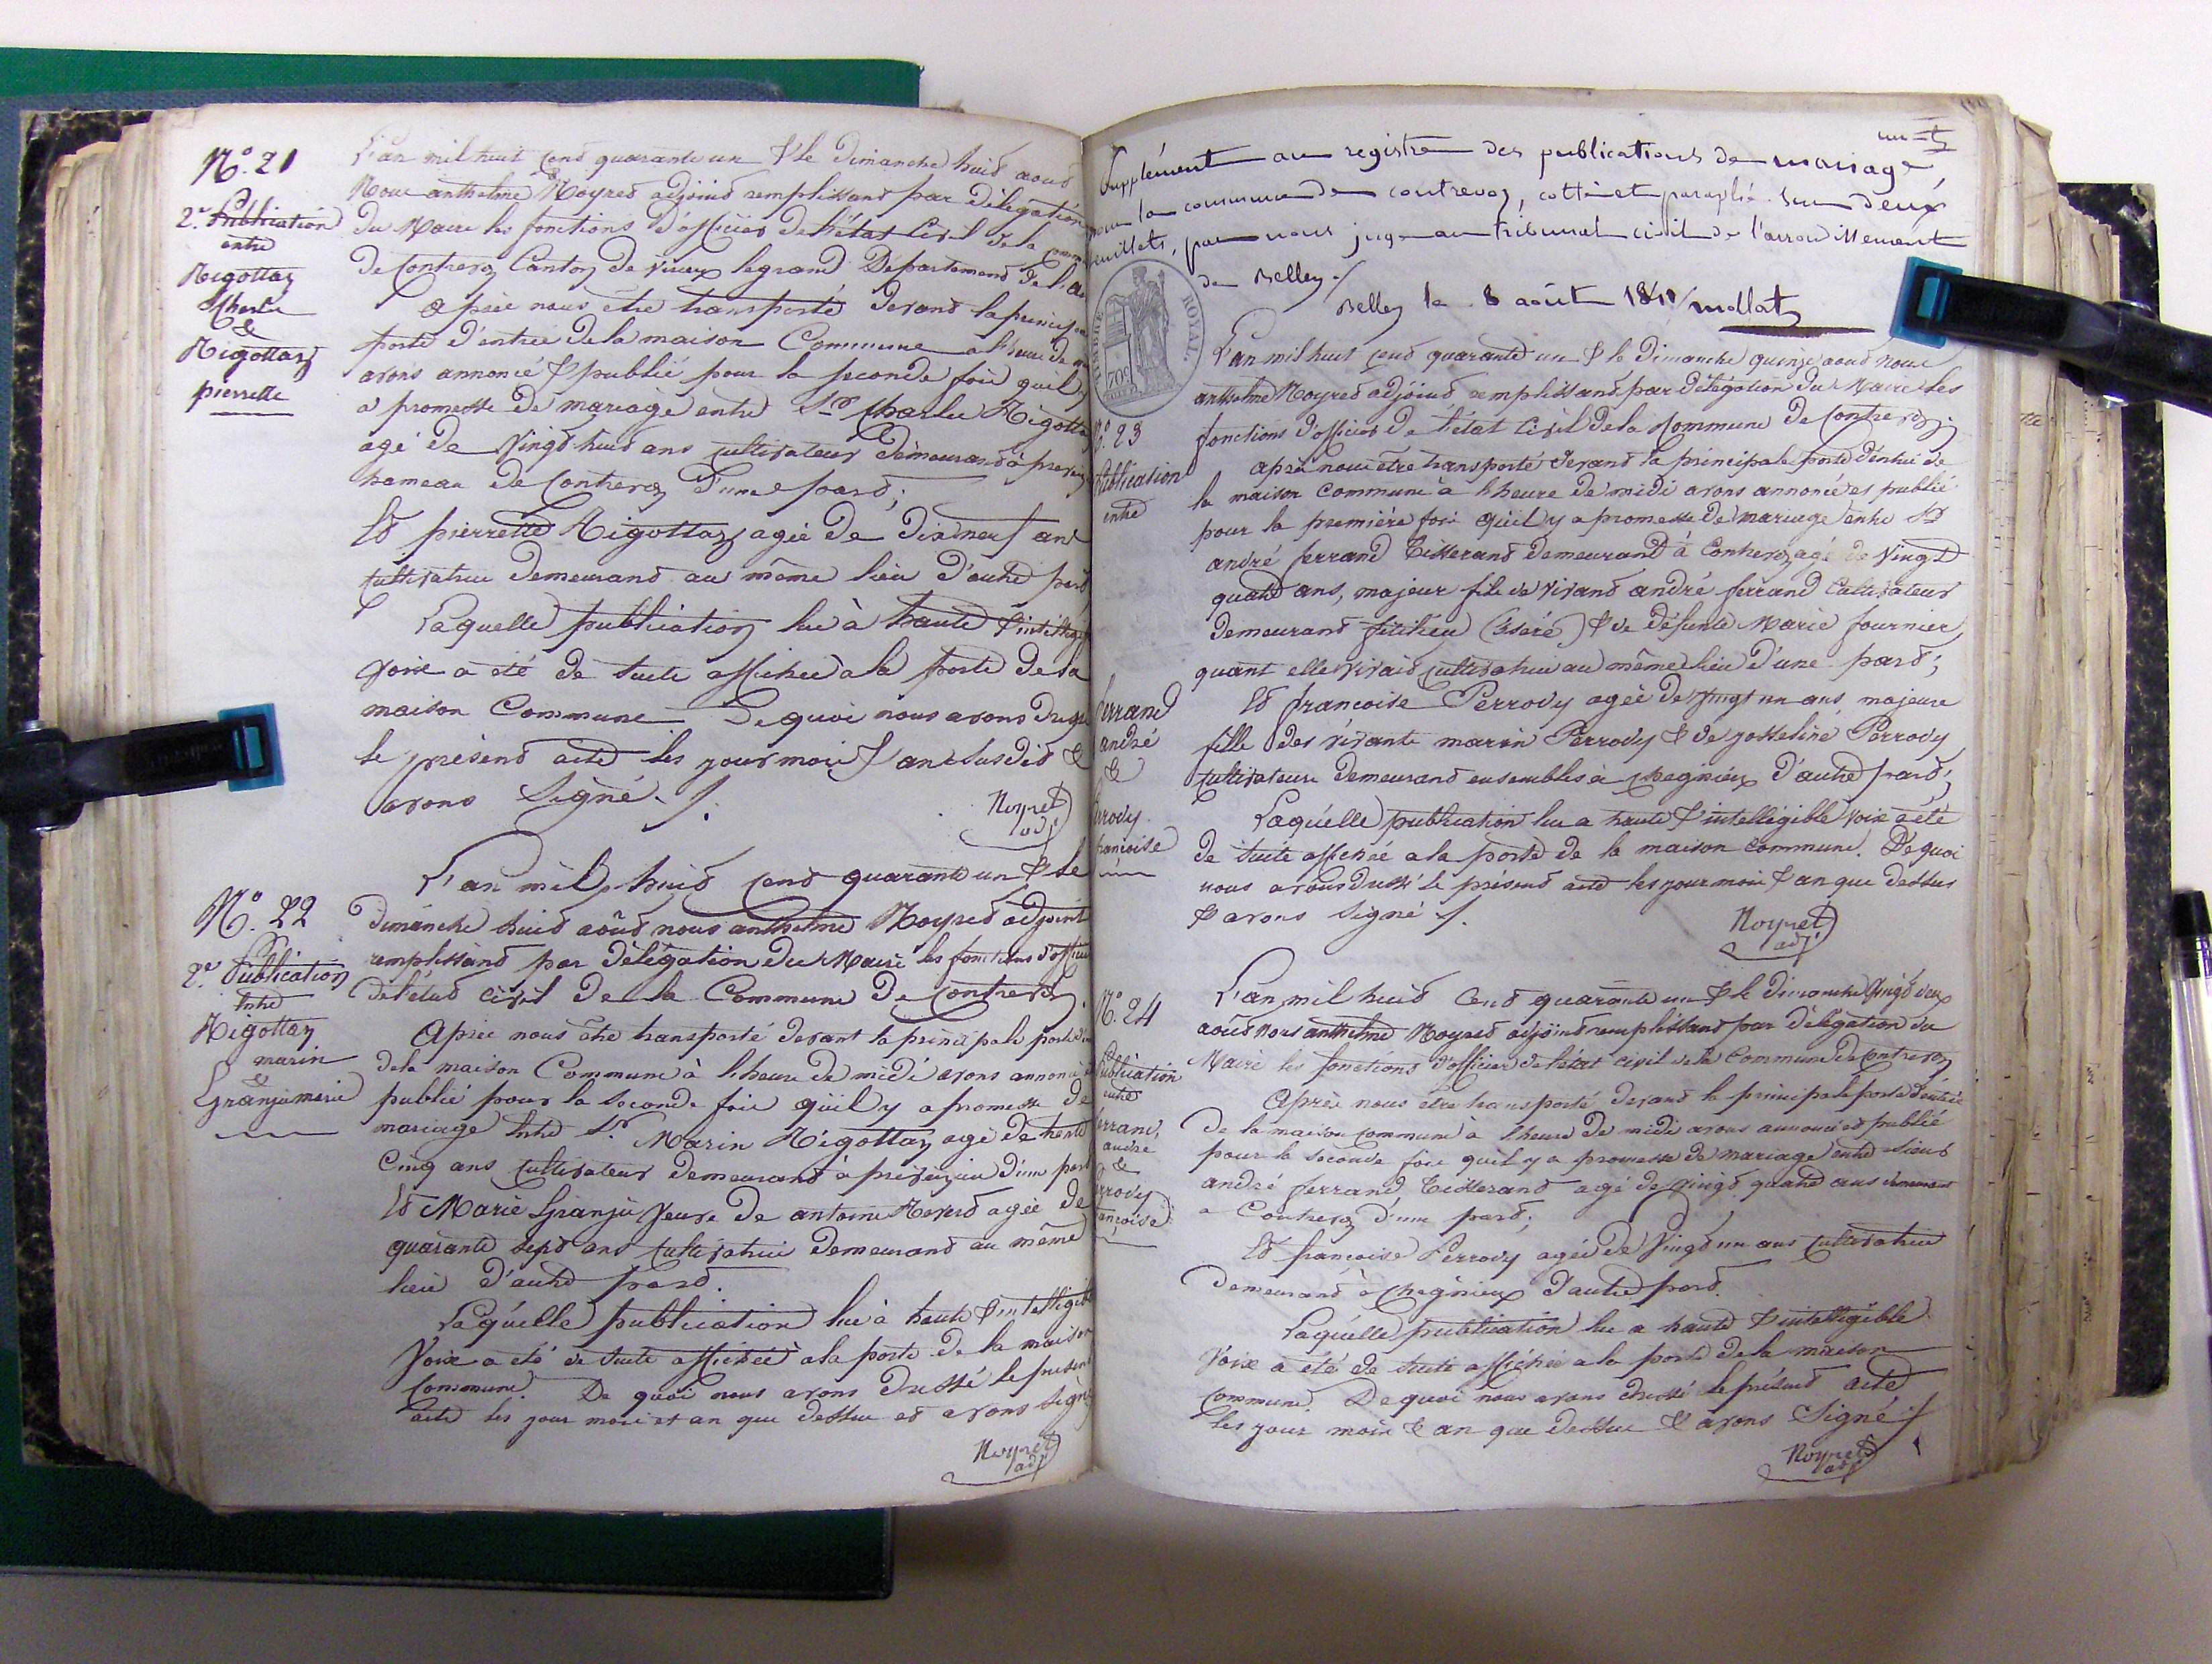 N.º 21
2.e Publication
entre
Rigottaz
Charle
&
Rigottaz
pierrette
L'an mil huit cend quarante un & le Dimanche huid aoud
Nous anthelme Noyred adjoind remplissand par délégation
du Maire les fonctions d'officier de l'état Civil de la
de Contrevoz Canton de Virieux legrand Département de l'ai
après nous être transporté devand la principa
porte d'entrée de la maison Commune a l'heure de
avons annoncé & publié pour la seconde fois quil y
a promesse de mariage entre Sr Charle Rigotta
agé de Vingd huid ans cultivateur demeurand à
hameau de Contrevoz D'une pard;
Ed pierrette Rigottaz agée de Dix neuf ans
cultivatrice demeurand au même lieu d'autre pard
Laquelle publication lue à haute & intellig
voix a été de suite affichée a la porte de la
maison Commune De quoi nous avons
le présend acte les jour mois & an susdid &
avons Signé ./.
Noyret
adj
N.º 22
2.e Publication
entre
Rigottaz
marin
&
Granju marie
L'an mil huid cend quarante un & le
Dimanche huid aoûd nous anthelme Noyred adjoint
remplissand par délégation du Maire les fonctions d'officier
de l'étad civil de la Commune de Contrevoz.
Après nous être transporté devant la principale porte
de la maison Commune à l'heure de midi avons annoncé
publié pour la seconde fois qu'il y a promesse de
mariage entre Sr. Marin Rigottaz agé de trente
Cinq ans cultivateur demeurand à d'une part
Ed Marie Granju Veuve de antoine agée de
quarante sepd ans cultivatrice demeurand au même
lieu d'autre pard.
Laquelle publication lue à haute & intelligib
Voix a été de suite affichée à la porte de la maison
Commune. De quoi nous avons dressé le présent
acte les jour mois et an que dessus ed avons signé
Noyret
adj
un
Supplément au registre des publications de mariage
pour la commune de contrevoz, cotté et paraphé sur deux
feuillets, par nous juge au tribunal civil de l'arrondissement
de Belley./
Belley le 8 août 1841/ mollat
TIMBRE ROYAL
70c
N.º 23
Publication
entre
ferrand
andré
&
errody
françoise
L'an mil huit cend quarante un & le Dimanche quinze aoud nous
anthelme Noyred adjoind remplissand par délégation du Maire les
fonctions d'officier de l'état Civil de la Commune de Contrevoz;
après nous être transporté devand la principale porte d'entrée de
la maison Commune à l'heure de midi avons annoncé et publié
pour la première fois qu'il y a promesse de mariage entre Sr
andré ferrand Tisserand demeurand à Contrevoz agé de Vingd
quatre ans, majeur fils de vivand andré ferrand Cultivateur
demeurand (Isère) & de défunte Marie fournier,
quant elle vivaid cultivatrice au même lieu d'une pard;
Ed françoise Perrody agée de vingt un ans, majeure
fille des vivants marin Perrody & de josseline Perrody
cultivateurs demeurand ensembles à Chegnieux d'autre pard;
Laquelle publication lue a haute & intelligible voix a été
de suite affichée a la porte de la maison commune. De quoi
nous avons dressé le présend acte les jour mois & an que dessus
& avons signé ./.
Noyret
adj.
N.º 24
Publication
entre
ferrand
andré
&
errody
ançoise
L'an mil huid cend quarante un & le dimanche vingd deux
aoûd nous anthelme Noyred adjoind remplissand par délégation du
Maire les fonctions d'officier de l'état civil de la Commune de Contrevoz
Après nous être transporté devand la principale porte d'entrée
de la maison commune à l'heure de midi avons annoncé ed publié
pour la seconde fois quil y a promesse de mariage entre sieur
andré ferrand, Tisserand agé de vingd quatre ans demeurant
a Contrevoz d'une pard;
Ed françoise Perrody agée de Vingd un ans cultivatrice
demeurand à Chegnieux d'autre pard.
Laquelle publication lue a haute & intelligible
Voix a été de suite affichée a la porte de la maison
commune. De quoi nous avons dressé le présend acte
les jour mois & an que dessus & avons Signé ./.
Noyret
adj